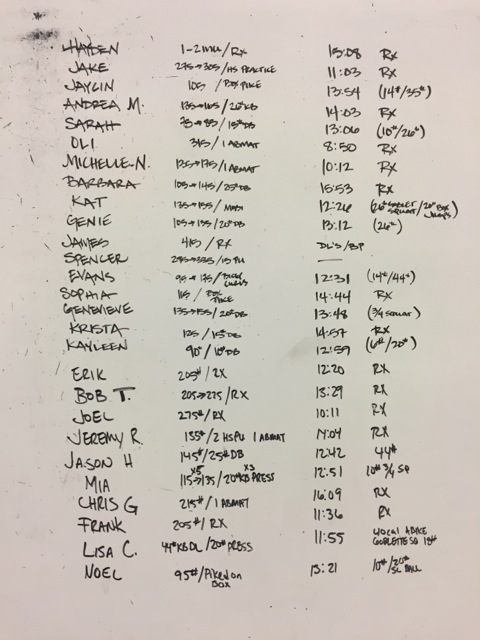 HAYDEN 1-2 MU/RX 13:08 RX
JAKE 275→305/HS PRACTICE 11:03 RX
JAYLIN 105/BOX PIKE 13:54 (14#/35#)
ANDREA M. 135→165/20#KB 14:03 RX
SARAH 75→85/15#DB 13:06 (10#/26#)
OLI 315/1 ABMAT 8:50 RX
MICHELLE N. 135→175/1 ABMAT 10:12 RX
BARBARA 105→145/25#DB 15:53 RX
KAT 135→155/ 12:26 (26# GOBLET SQUAT/20# BOX JUMPS)
GENIE 105→135/20#DB 13:12 (26#)
JAMES 415/RX DL'S/BP
SPENCER /15 PU —
EVANS 95→175/ 12:31 (14#/44#)
SOPHIA 115/BOX PIKE 14:44 RX
GENEVIEVE 135→155/20#DB 13:48 (3/4 SQUAT)
KRISTA 125/15#DB 14:57 RX
KAYLEEN 90#/10#DB 12:59 (6#/20#)
ERIK 205#/RX 12:20 RX
BOB T. 205→275/RX 13:29 RX
JOEL 275#/RX 10:11 RX
JEREMY R. 155#/2 HSPU 1 ABMAT 14:04 RX
JASON H 145#/25#DB 12:42 44#
MIA 115→135/20#KB PRESS 12:51 10# 3/4 SQ
x5 x3
CHRIS G 215#/1 ABMAT 16:09 RX
FRANK 205#/RX 11:36 RX
LISA C. 44#KB DL/20#PRESS 11:55 40 CAL A BIKE
GOBLET SQ 18#
NOEL 95#/Piked on BOX 13:21 10#/20# SL BALL